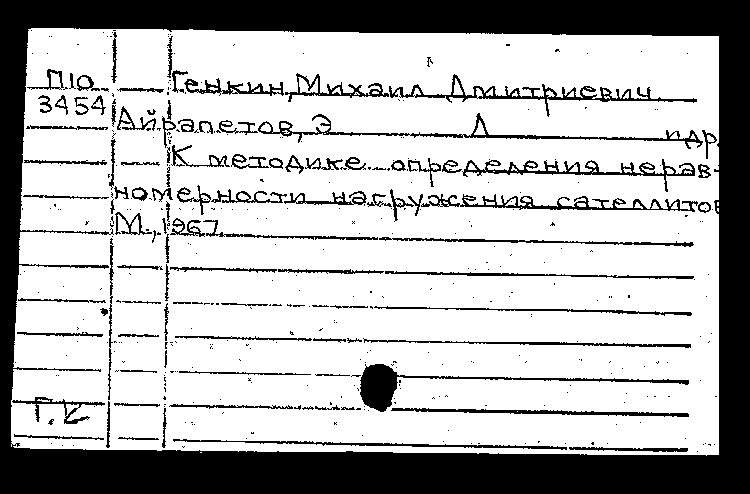 П10
3454
Генкин, Михаил Дмитриевич
Айрапетов, Э Л и др.
К методике определения нерав-
номерности нагружения сателлитов
М., 1967
Г.К